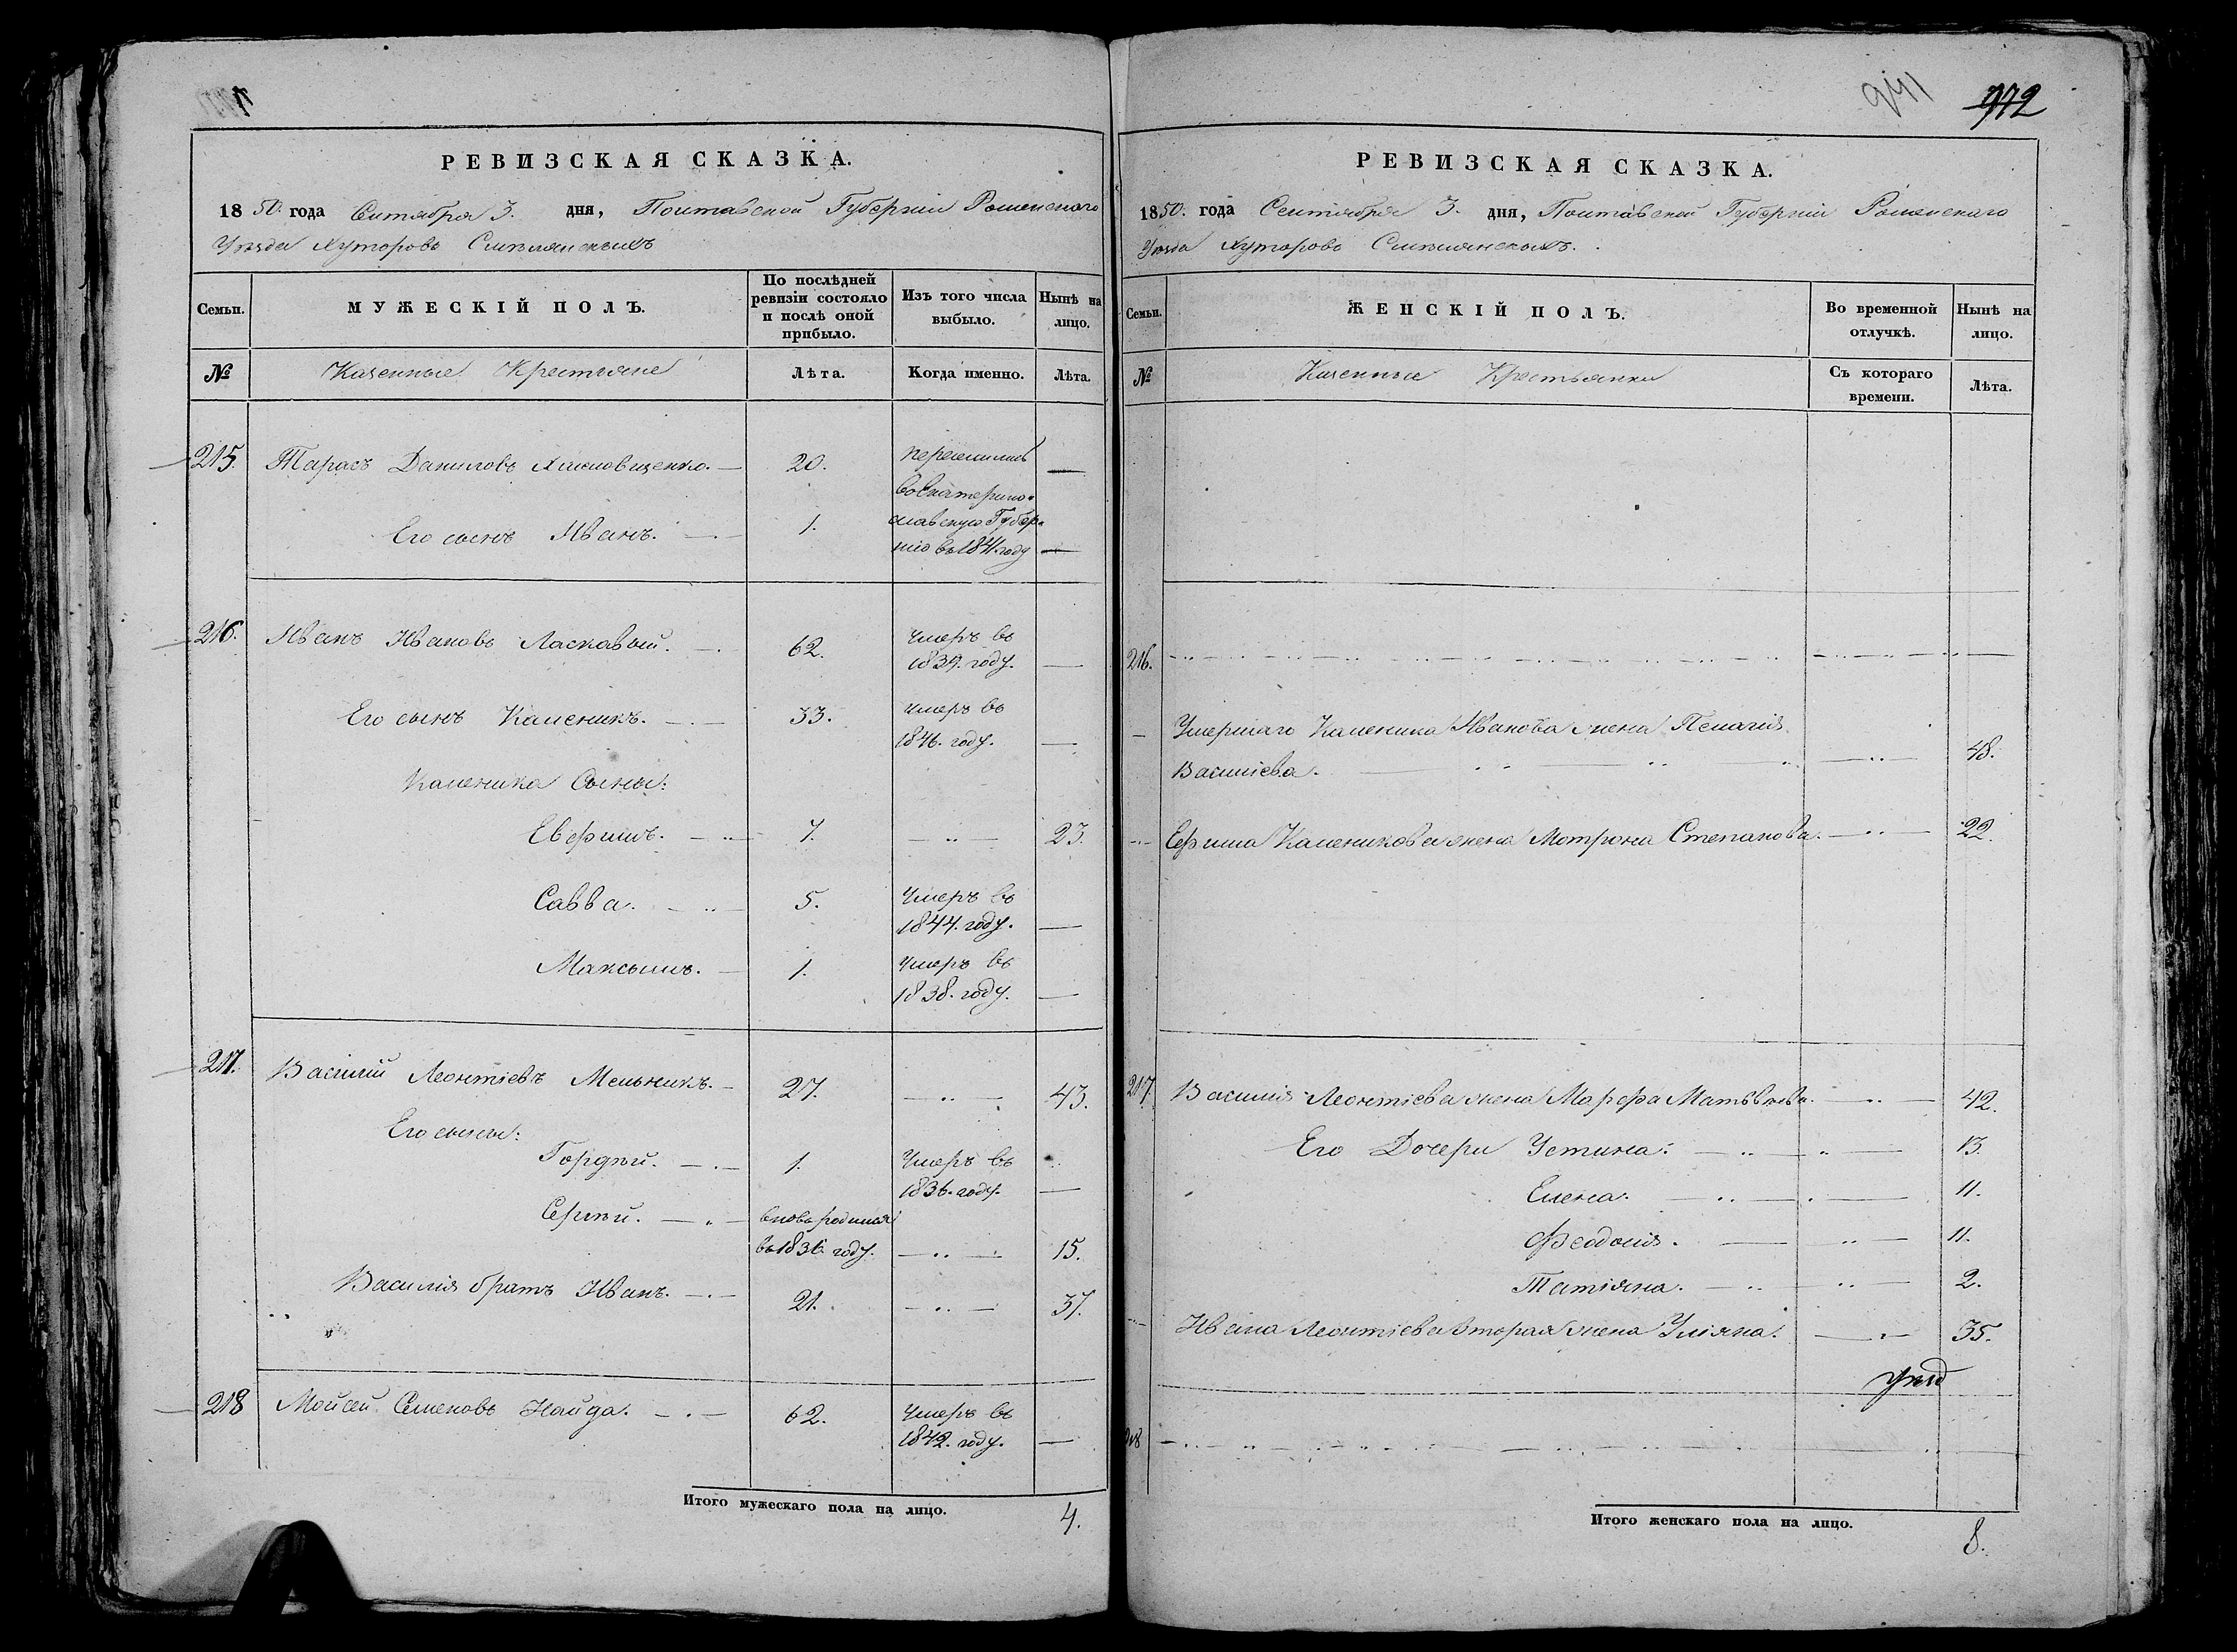 972
РЕВИЗСКАЯ СКАЗКА.
1850. года Сентября 3. дня, Полтавской Губерніи Роменскаго
Уѣзда Хуторовъ
МУЖЕСКІЙ ПОЛЪ.
Семьи.
По послѣдней ревизіи состояло и послѣ оной прибыло.
Изъ того числа выбыло.
Нынѣ на лицо.
№
Казенные Крестьяне
Лѣта.
Когда именно.
Лѣта.
215. Тарасъ Даниловъ 20. переселились —
въ Екатерино-
Его сынъ Иванъ. 1. славскую Губер-
нію въ 1841. году —
216. Иванъ Ивановъ Ласкавый. 62. Умеръ въ
1839. году. —
Его сынъ Каленикъ. 33. умеръ въ
1846. году. —
Каленика Сыны:
Ефимъ. 7. — 23.
Савва. 5. Умеръ въ
1844. году. —
Максымъ. 1. Умеръ въ
1838. году. —
217. Василій Леонтіевъ Мельникъ. 27. — 43.
Его сыны:
Гордѣй. 1. Умеръ въ
1836. году. —
Сергѣй. вновь родился
въ 1836 году. — 15.
Василія братъ Иванъ. 21. — 37.
218 Мойсей Семеновъ Найда. 62. Умеръ въ
1842. году. —
Итого мужескаго пола на лицо. 4.
РЕВИЗСКАЯ СКАЗКА.
1850. года Сентября 3. дня, Полтавской Губерніи Роменскаго
Уѣзда Хуторовъ
Семьи.
ЖЕНСКІЙ ПОЛЪ.
Во временной отлучкѣ.
Нынѣ на лицо.
№
Казенные Крестьянки
Съ котораго времени.
Лѣта.
216.
Умершаго Каленика Иванова жена Пелагія
Василіева. 48.
Ефима Каленикова жена Мотрона Степанова. 22.
217. Василія Леонтіева жена Марфа Матвѣева. 42.
Его Дочери Устина: 13.
Елена. 11.
Феодосія. 11.
Татіяна. 2.
Ивана Леонтіева вторая жена Уліяна. 35.
218
Итого женскаго пола на лицо. 8.